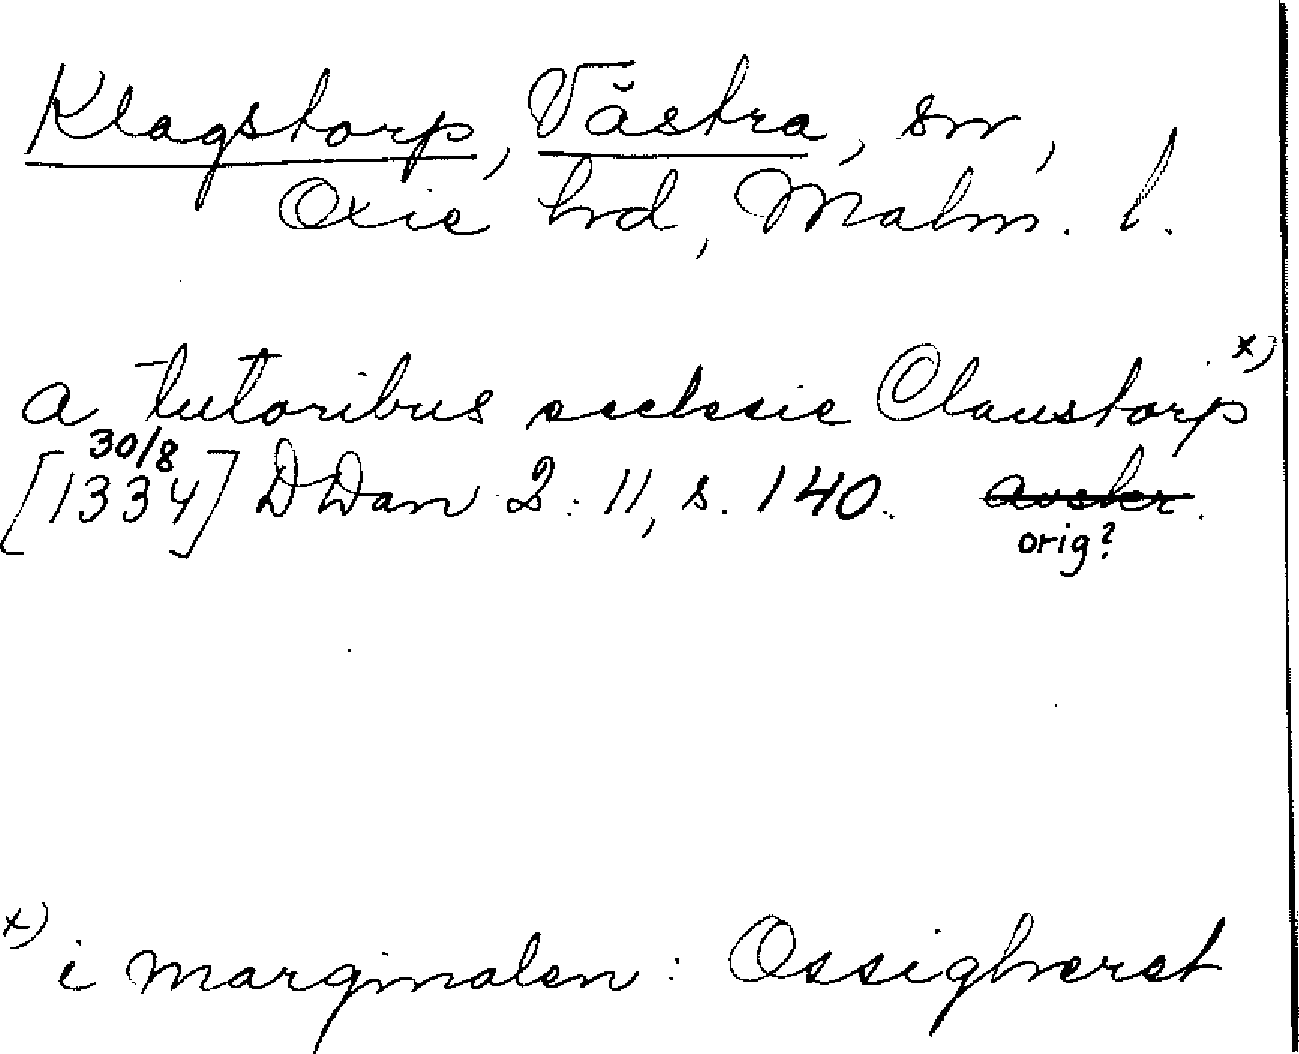 Klagstorp, Västra, sn,
Oxie hd, Malm. l.
a tutoribus ecclesie Claustorp x)
30/8
[1334] DDan 2:11, s. 140. avskr.
orig?
x) i marginalen: Ossighæret